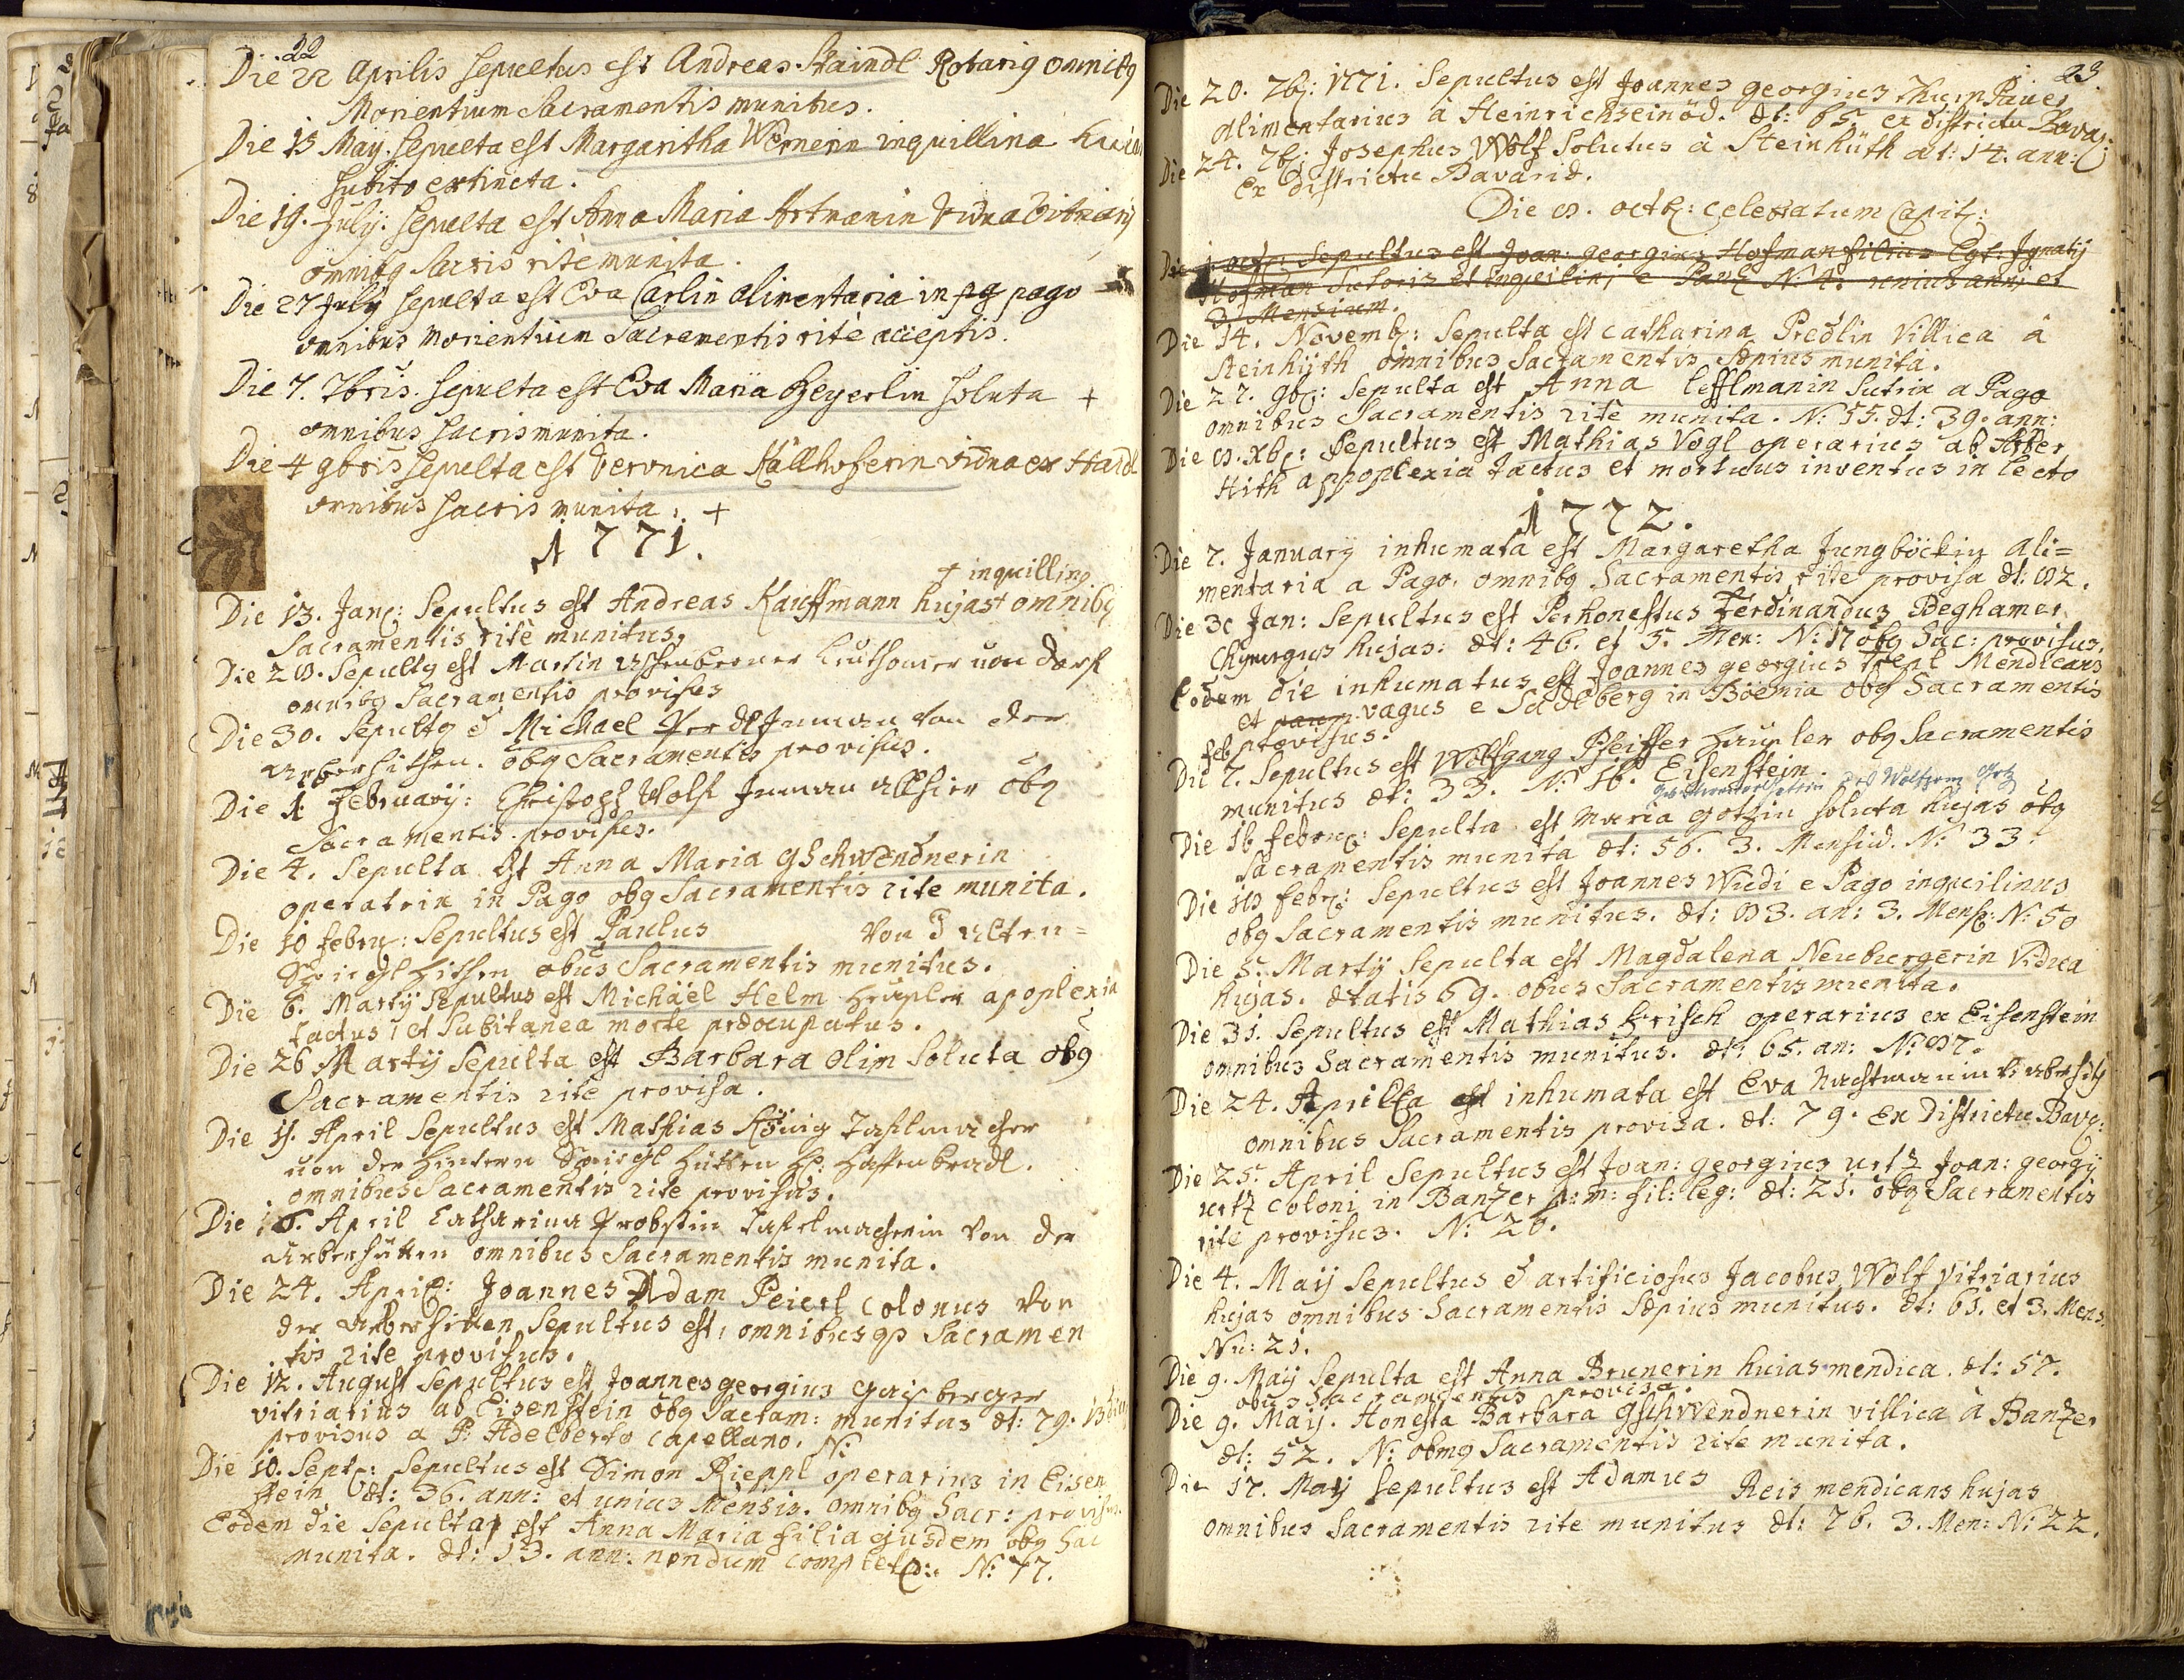 22
Die 22 Aprilis sepultus est Andreas Staindl Rotarig omnibg
Morientium Sacramentis munitus.
Die 13 Maÿ. sepulta est Margaritha Wernerin inquillina huias
subito extincta.
Die 19. Julÿ. sepulta est Anna Maria Artmanin vidua vitriarÿ
omnibg Sacris ritè munita.
Die 27 July sepulta est Eva Carlin alimentaria in pago
omnibus Morientium Sacramentis ritè acceptis.
Die 7. 7bris. sepulta est Eva Maria Beyerlin soluta +
omnibus sacris munita.
Die 4 9bris sepulta est Veronica Källhoferin vidua ex Haidl
omnibus sacris munita. +
1771.
+ inquilling
Die 13. Jan: Sepultus est Andreas Kauffmann hujas + omnibg
Sacramentis ritè munitus.
Die 28. Sepultg est Martin von Dorf
omnibg Sacramentis provisus
Die 30. Sepultg e Michael Inman von der
Arberhitten. obg Sacramentis provisus.
Die 1 Februarij: Christoph Wolf Inman allhier obg
Sacramentis provisus.
Die 4. Sepulta est Anna Maria gschwendnerin
operatrix in Pago obg Sacramentis rite munita.
Die 10 febru: Sepultus est Paulus von d alten=
Spieglhitten obus Sacramentis munitus.
Die 6. Martÿ Sepultus est Michaël Helm Heusler apoplexia
tactus, et Subitanea morte præocupatus.
Die 26 Martÿ Sepulta est Barbara olim Soluta obg
Sacramentis rite provisa.
Die 11. April Sepultus est Mathias König Taflmacher
von der hintern Spiegl hütten H: Hafenbradl.
omnibus Sacramentis rite provisus.
Die 16. April Catharina Probstin Taflmacherin von der
Arberhütten omnibus Sacramentis munita.
Die 24. April: Joannes Adam Peierl colonus von
der Arberhitten Sepultus est, omnibusqs Sacramen
tis rite provisus.
Die 12. August Sepultus est Joannes georgius gaisberger
vitriarius ab Eisenstein obg Sacram: munitus æt: 79.
provisus a P. Adelberto Capellano. N:
Die 10. Sept: Sepultus est Simon Rieppl operarius in Eisen
stein æt: 36. ann: et unius Mensis. omnibg Sacr: provisus
Eodem die Sepulta est Anna Maria filia ejusdem obg Sac
munita. æt: 13. ann: nondum completo:. N: 77.
23.
Die 20. 7b: 1771. Sepultus est Joannes georgius Thurnpauer
alimentarius à Heinrichseinöd. æt: 65. ex districtu Bavar:
Die 24. 7b: Josephus Wolf Solutus à Steinhüth æt: 14. ann:
Ex districtu Bavariæ.
Die 8. octb: celebratum Capit:
Die 1. octb: Sepultus est Joan: georgius Hofman filius Egt: Ignatij
Hofman Sutoris et inquilini e Pago N: 4. unius anni et
3 Mensium.
Die 14. Novemb: Sepulta est Catharina Predlin Villica à
Steinhÿth omnibus Sacramentis Sæpius munita.
Die 27. 9b: Sepulta est Anna lefflmanin Sutrix a Pago
omnibus Sacramentis ritè munita. N: 55. æt: 39. ann:
Die 8. Xb: Sepultus est Mathias Vogl operarius ab Arber
Hith appoplexia tactus et mortuus inventus in lecto
1772.
Die 7. Januarÿ inhumata est Margaretha Jungböckin ali=
mentaria a Pago. omnibg Sacramentis rite provisa æt: 82.
Die 30 Jan: Sepultus est Perhonestus Ferdinandus Deghamer
Chyrurgus hujas: æt: 46. et 5. Men: N: 17 obg Sac: provisus.
Eodem die inhumatus est Joannes georgius Trepl Mendicans
et vagus e Sadlberg in Böemia obg Sacramentis
provisus.
feb
Die 7. Sepultus est Wolfgang Pfeiffer Häusler obg Sacramentis
munitus æt: 33. N: 16. Eisenstein.
des Wolfgang Götz
Die 16 febru: Sepulta est Maria gotzin soluta hujas obg
Sacramentis munita æt: 56. 3. Mensiu. N: 33.
Die 18 febr: Sepultus est Joannes Wudi e Pago inquilinus
obg Sacramentis munitus. æt: 83. an: 3. Mens: N: 50
Die 5. Martÿ Sepulta est Magdalena Neuburgerin Vidua
hujas. ætatis 69. obus Sacramentis munita.
Die 31. Sepultus est Mathias Frisch operarius ex Eisenstein
omnibus Sacramentis munitus. æt: 65. an: N: 87.
Die 24. Aprill inhumata est Eva Nachtmanin
omnibus Sacramentis provisa. æt: 79. Ex Districtu Bava:
Die 25. April Sepultus est Joan: georgius urtz Joan: georgÿ
urtz coloni in Banzer p:m: fil: leg: æt: 21. obg Sacramentis
rite provisus. N: 26.
Die 4. Maij Sepultus e artificiosus Jacobus Wolf Vitriarius
hujas omnibus Sacramentis Sæpius munitus. æt: 61. et 3. Mens.
Nu: 21.
Die 9. Maÿ Sepulta est Anna Brunerin huias mendica. æt: 57.
obus Sacramentis provisa.
Die 9. Maÿ. Honesta Barbara gschwendnerin villica à Banzer
æt: 52. N: obmg Sacramentis rite munita.
Die 17. Maij Sepultus est Adamus Reis mendicans hujas
omnibus Sacramentis rite munitus æt: 76. 3. Men: N: 22.